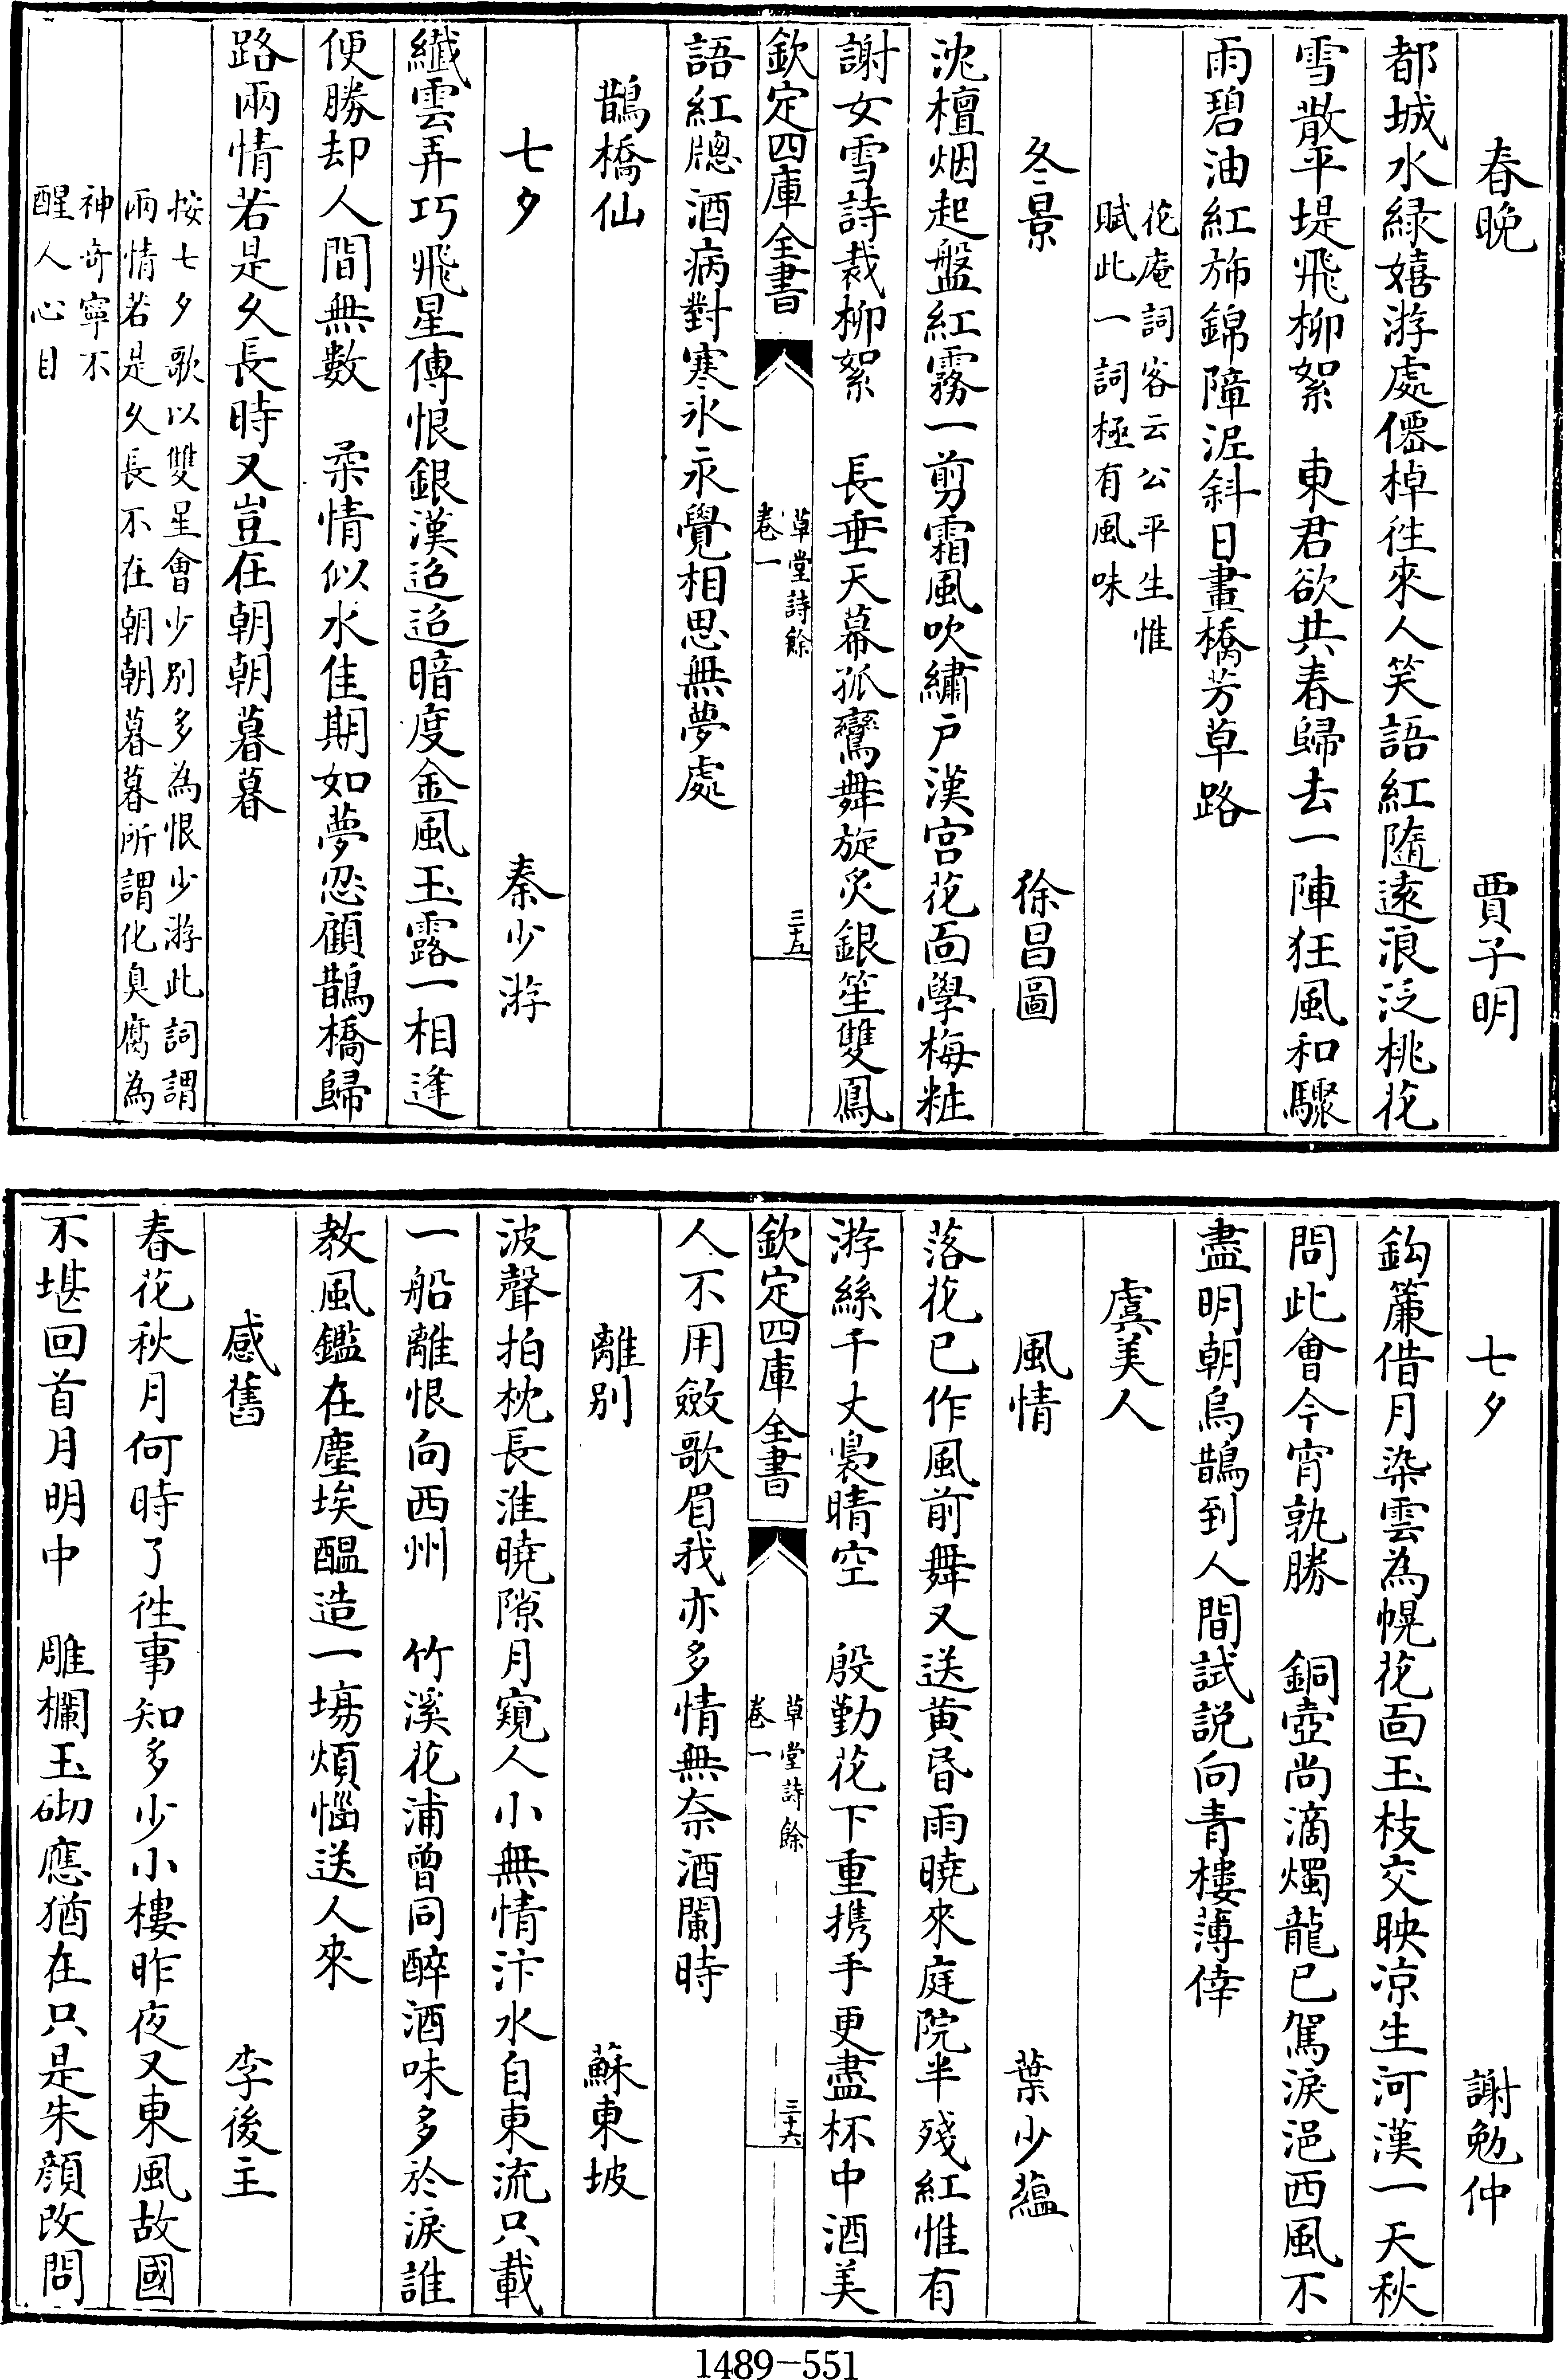 春晚　賈子明
都城水緑嬉游處僊棹徃來人笑語紅隨逺浪泛桃花
雪散平堤飛柳絮　東君欲共春歸去一陣狂風和驟
雨碧油紅斾錦障泥斜日畫橋芳草路
花庵詞客云公平生惟
賦此一詞極有風味
冬景　徐昌圖
沈檀烟起盤紅霧一剪霜風吹繡戸漢宮花靣學梅粧
謝女雪詩裁柳絮　長垂天幕孤鸞舞旋炙銀笙雙鳳
欽定四庫全書
草堂詩餘
卷一
三十五
語紅牕酒病對寒氷永覺相思無夢處
鵲橋仙
七夕　秦少游
纎雲弄巧飛星傳恨銀漢迢迢暗度金風玉露一相逢
便勝却人間無數　柔情似水佳期如夢忍顧鵲橋歸
路兩情若是久長時又豈在朝朝暮暮
按七夕歌以雙星會少别多為恨少游此詞謂
兩情若是久長不在朝朝暮暮所謂化臭腐為
神竒寧不
醒人心目
七夕　謝勉仲
鈎簾借月染雲為幌花靣玉枝交映凉生河漢一天秋
問此會今宵孰勝　銅壺尚滴燭龍已駕淚浥西風不
盡明朝烏鵲到人間試説向青樓薄倖
虞美人
風情　葉少藴
落花已作風前舞又送黄昏雨曉來庭院半殘紅惟有
游絲千丈裊晴空　殷勤花下重携手更盡杯中酒美
欽定四庫全書
草堂詩餘
卷一
三十六
人不用斂歌眉我亦多情無奈酒闌時
離别　蘇東坡
波聲拍枕長淮曉隙月窺人小無情汴水自東流只載
一船離恨向西州　竹溪花浦曾同醉酒味多於淚誰
教風鑑在塵埃醖造一塲煩惱送人來
感舊　李後主
春花秋月何時了徃事知多少小樓昨夜又東風故國
不堪回首月明中　雕欄玉砌應猶在只是朱顔改問
1489-551